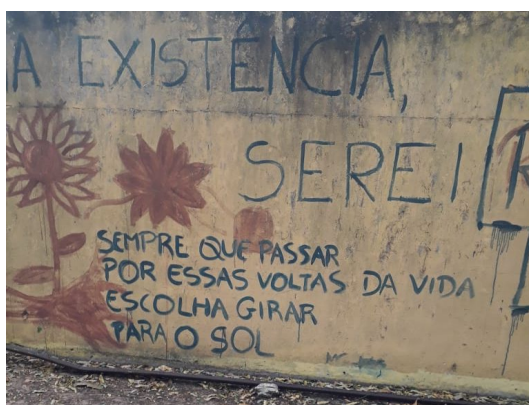 A EXISTÊNCIA,
SEREI
SEMPRE QUE PASSAR
POR ESSAS VOLTAS DA VIDA
ESCOLHA GIRAR
PARA O SOL